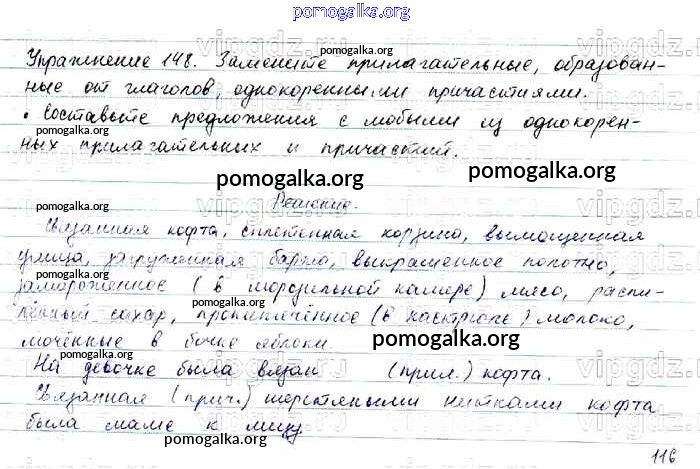 pomogalka.org
Упражнение 148. Замените прилагательные, образован-
ные от глаголов, однокоренными причастиями.
• Составьте предложения с любыми из однокорен-
ных прилагательных и причастий.
pomogalka.org
Решение.
Связанная кофта, сплетённая корзина, вымощенная
улица, загруженная баржа, выкрашенное полотно,
замороженное (в морозильной камере) мясо, распи-
ленный сахар, прокипячённое (в кастрюле) молоко,
мочёные в бочке яблоки.
На девочке была вязан (прил.) кофта.
Связанная (прич.) шерстяными нитками кофта
была маме к лицу
pomogalka.org
116